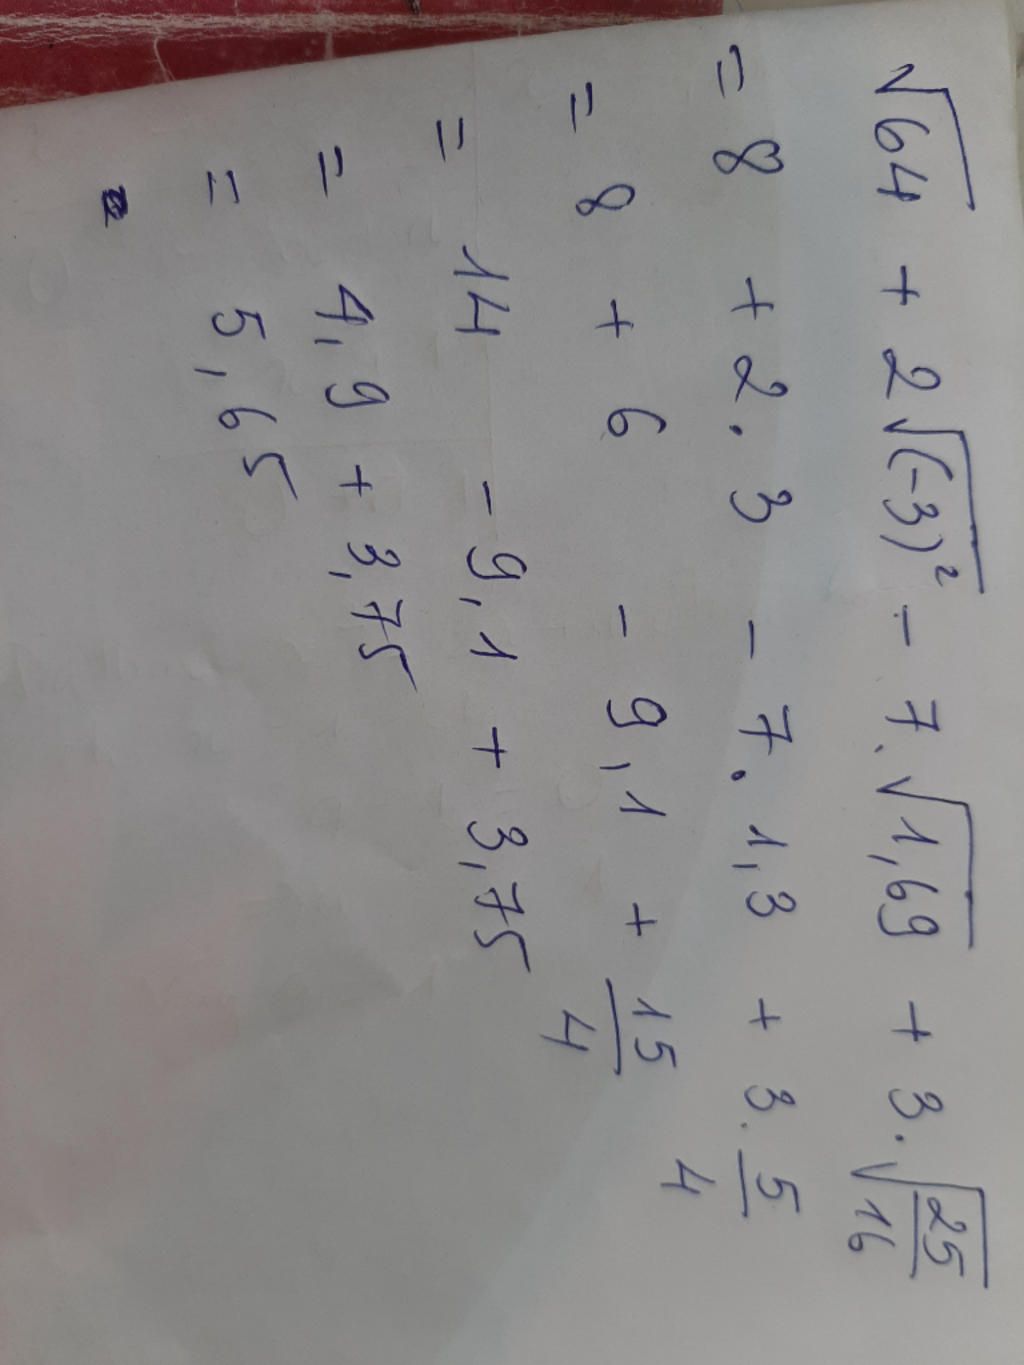 √64 + 2√(-3)² - 7.√1,69 + 3.√25/16
= 8 + 2.3 - 7.1,3 + 3.5/4
= 8 + 6 - 9,1 + 15/4
= 14 - 9,1 + 3,75
= 4,9 + 3,75
= 5,65